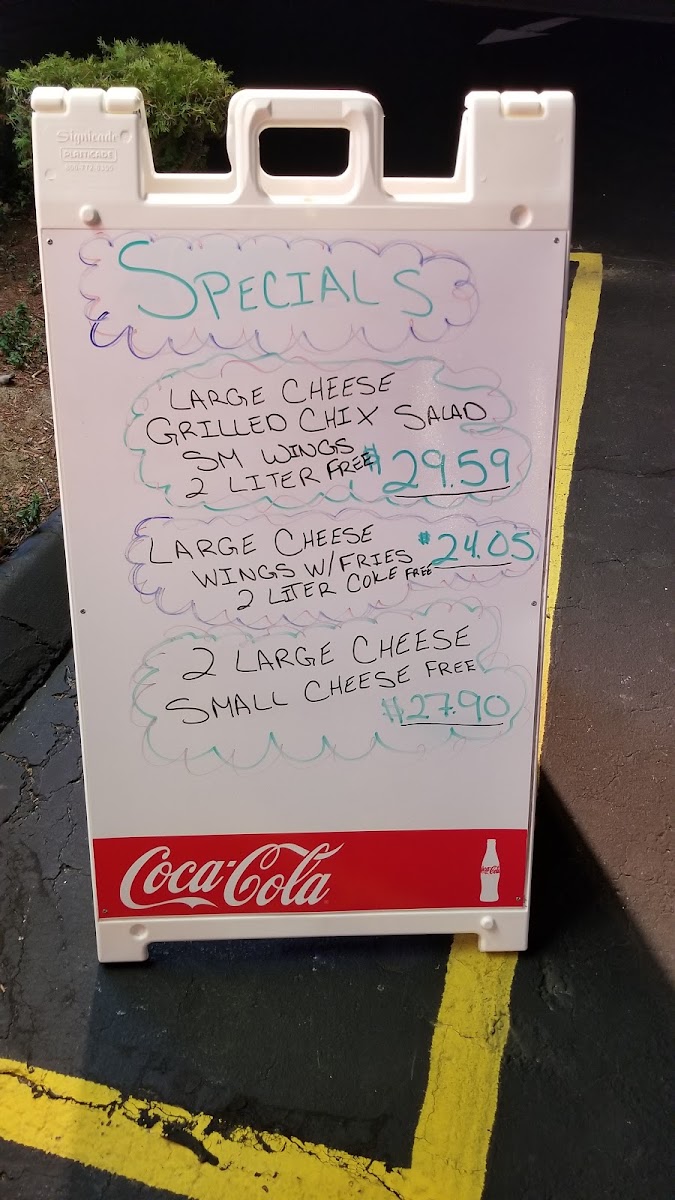 Signicade
PLASTICADE
SPECIALS
LARGE CHEESE
GRILLED CHIX SALAD
SM WINGS
2 LITER FREE $29.59
LARGE CHEESE
WINGS W/FRIES $24.05
2 LITER COKE FREE
2 LARGE CHEESE
SMALL CHEESE FREE
$27.90
Coca-Cola
Coca-Cola